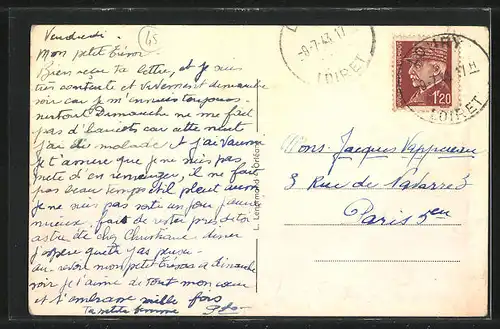 Vendredi.
(45)
Mon petit Trésor.
Bien reçu ta lettre, et je suis
très contente et vivement dimanche
soir car je m'ennuie toujours.
surtout Dimanche ne me fait
pas d'haricots car cette nuit
j'ai été malade et j'ai vomi
je t'assure que je ne suis pas
prête d'en remanger, il ne fait
pas beau temps il pleut aussi
je ne suis pas sortie un jour j'aime
mieux rester près de toi
de chez Christiane
j'espère que tu pas
au revoir mon petit Trésor à dimanche
soir je t'aime de tout mon cœur
et t'embrasse mille fois
Ta petite femme
L. Lenormand - Orléans
9-7-43 17
LOIRET
1F20
17 H
LOIRET
Mons. Jacques Vappereau
3 Rue de Navarre 3
Paris 5en